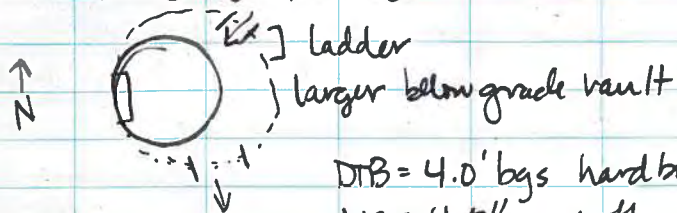 ladder
N larger below grade vault
DTB = 4.0' bgs hard b